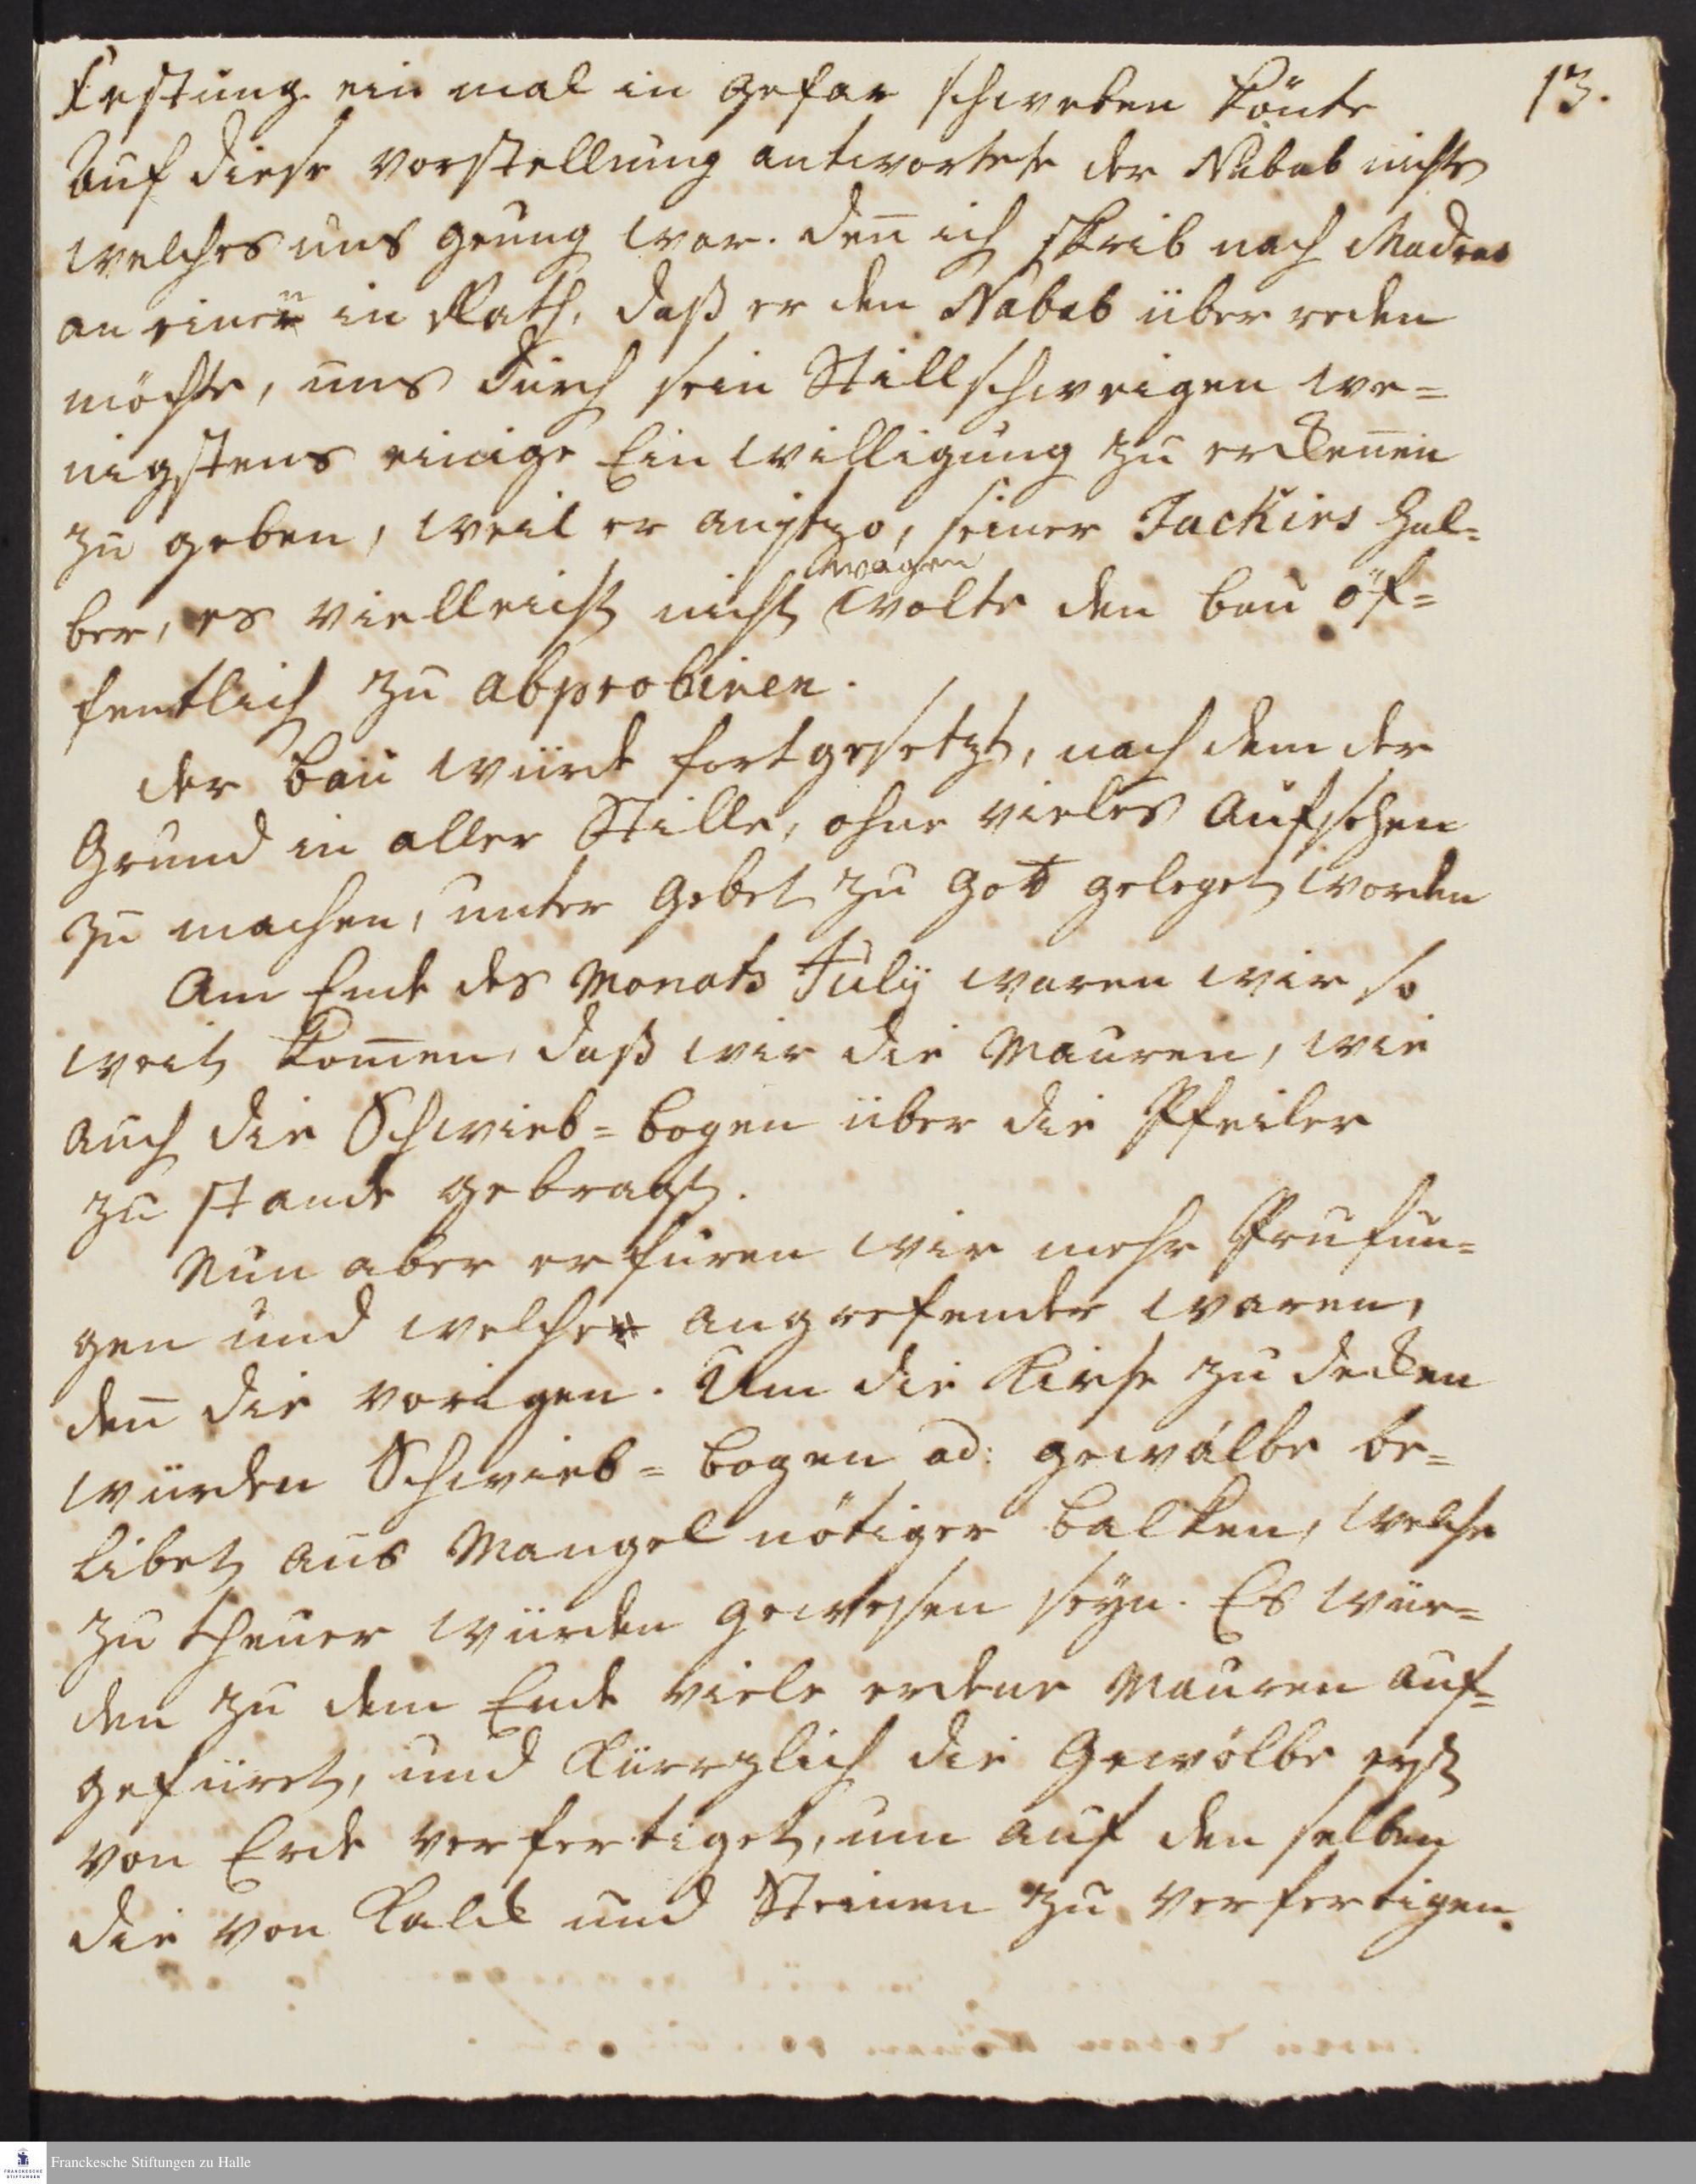 13.
Festung ein mal in gefar schweben könte
Auf diese vorstellung antwortete der Nabab nichts
welches uns genug war. deñ ich schrib nach Madras
an einen in Rath, daß er den Nabab über reden
möchte, uns durch sein Stillschweigen we=
nigstens einige Einwilligung zu erkeñen
zu geben, weil er anjetzo, seiner Fackirs hal=
ber, es vielleicht nicht wagen wolte den bau öf=
fentlich zu abprobiren.
der bau würde fortgesetzt, nach dem der
Grund in aller Stille, ohne vieles Aufsehen
zu machen, unter Gebet zu Gott geleget worden
Am Ende des Monats July waren wir so
weit kom̃en, daß wir die Mauren, wie
auch die Schwieb=bogen über die Pfeiler
zu stande gebracht.
Nun aber erfuren wir mehr Prufun=
gen und welche angrefender waren,
deñ die vorigen. Um die Kirche zu decken
würden Schwieb=bogen od: gewälbe be=
libet aus Mangel nötiger balken, welche
zu theuer würden gewesen seyn. Es wür=
den zu dem Ende viele erdene Mauren auf=
gefüret, und kürzlich die Gewölbe erst
von Erde verfertiget, um auf den selben
die von Kalck und Steinen zu verfertigen.
Franckesche Stiftungen zu Halle
FRANCKESCHE
STIFTUNGEN